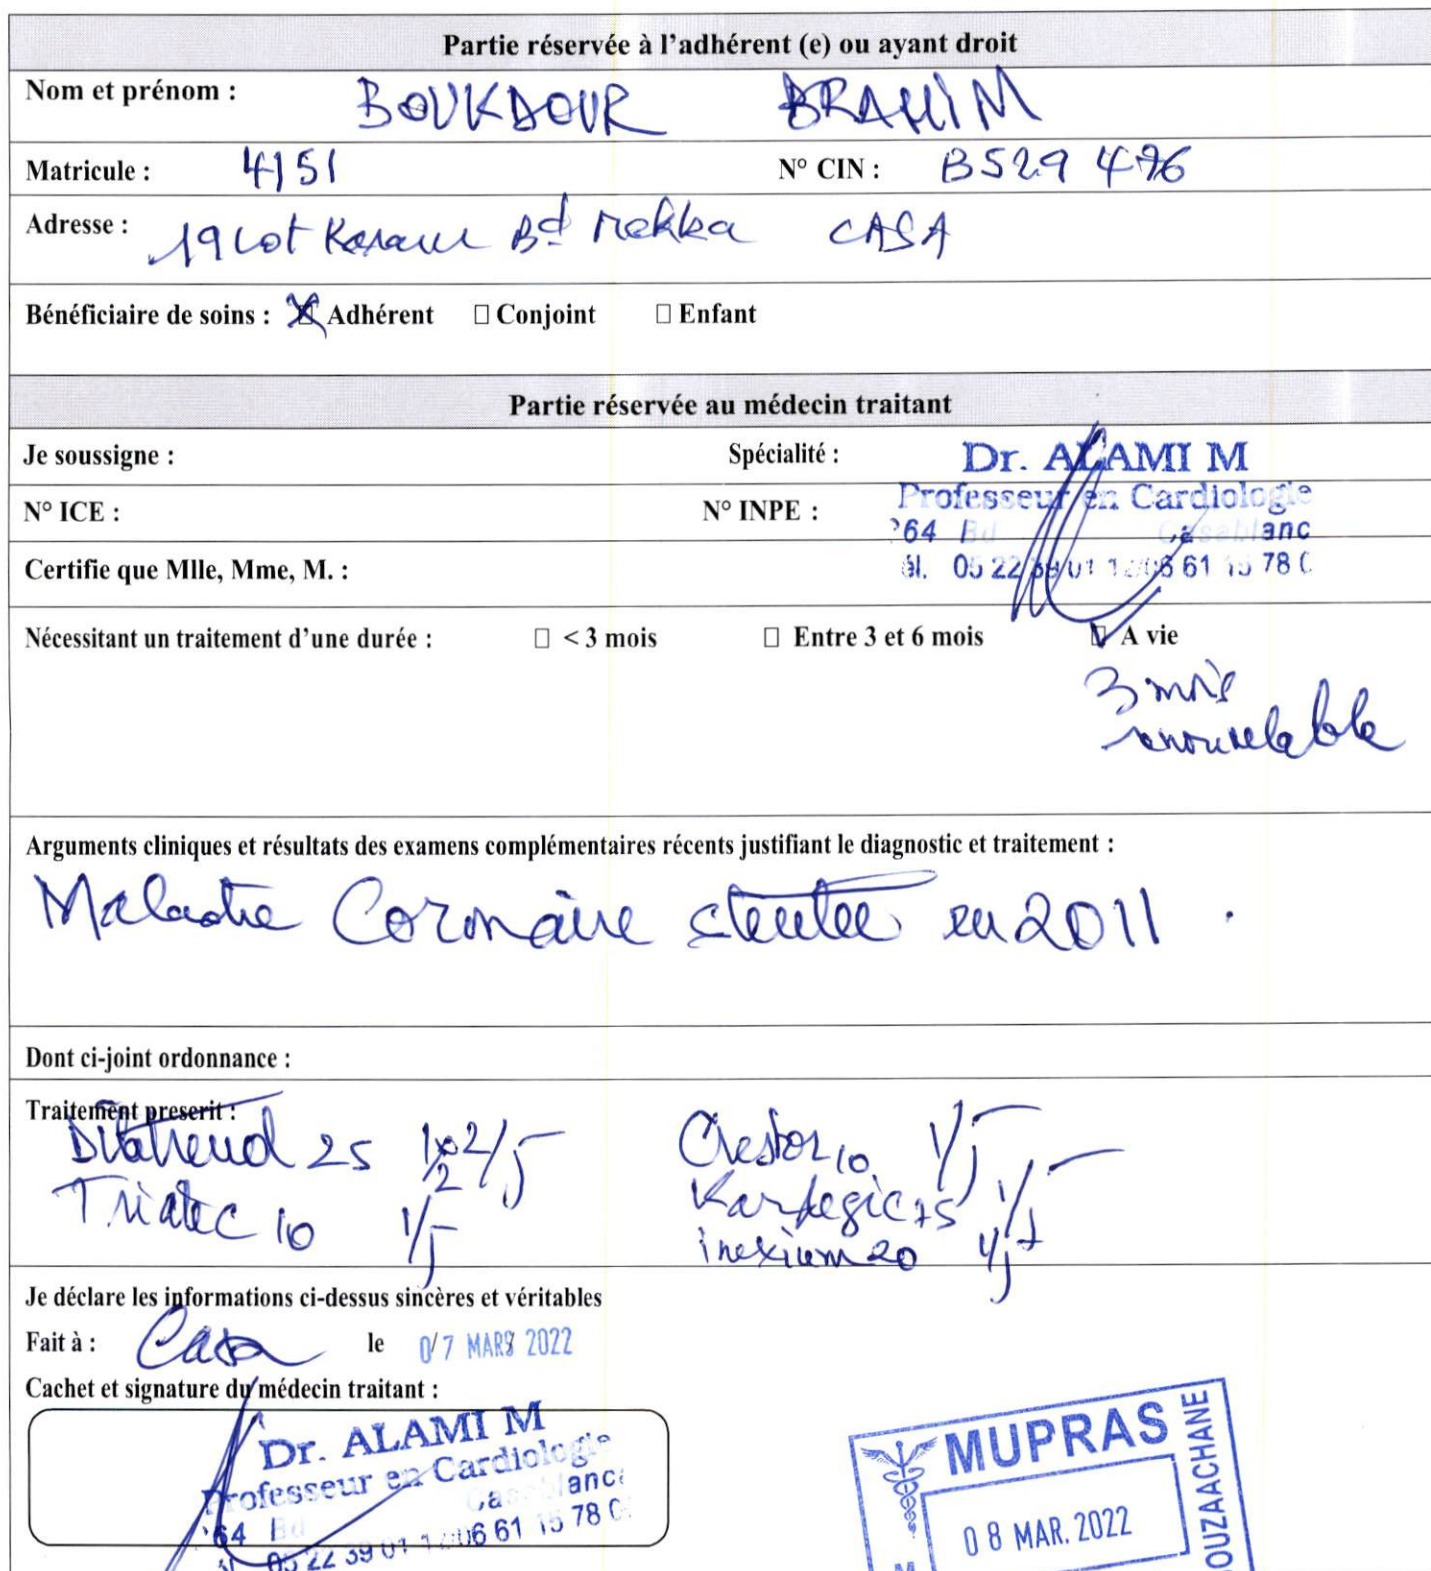 Partie réservée à l'adhérent (e) ou ayant droit
Nom et prénom : BOUKDOUR BRAHIM
Matricule : 4151 N° CIN : B529 476
Adresse : 19 Lot Karam Bd Mekka CASA
Bénéficiaire de soins : Adhérent □ Conjoint □ Enfant
Partie réservée au médecin traitant
Je soussigne : Spécialité : Dr. ALAMI M
Professeur en Cardiologie
N° ICE : N° INPE : 64 Bd Casablanc
Certifie que Mlle, Mme, M. : él. 05 22 39 01 1 06 61 15 78 0
Nécessitant un traitement d'une durée : □ < 3 mois □ Entre 3 et 6 mois A vie
3 mois
renouvelable
Arguments cliniques et résultats des examens complémentaires récents justifiant le diagnostic et traitement :
Maladie Coronaire stentée en 2011 .
Dont ci-joint ordonnance :
Traitement prescrit :
Dilatrend 25 1/2 x 2/j Crestor 10 1/j
Triatec 10 1/j Kardegic 75 1/j
inexium 20 1/j
Je déclare les informations ci-dessus sincères et véritables
Fait à : Casa le 07 MARS 2022
Cachet et signature du médecin traitant :
Dr. ALAMI M
Professeur en Cardiologie
64 Bd Casablanca
05 22 39 01 1 06 61 15 78 0
MUPRAS
08 MAR. 2022
OUZAACHANE